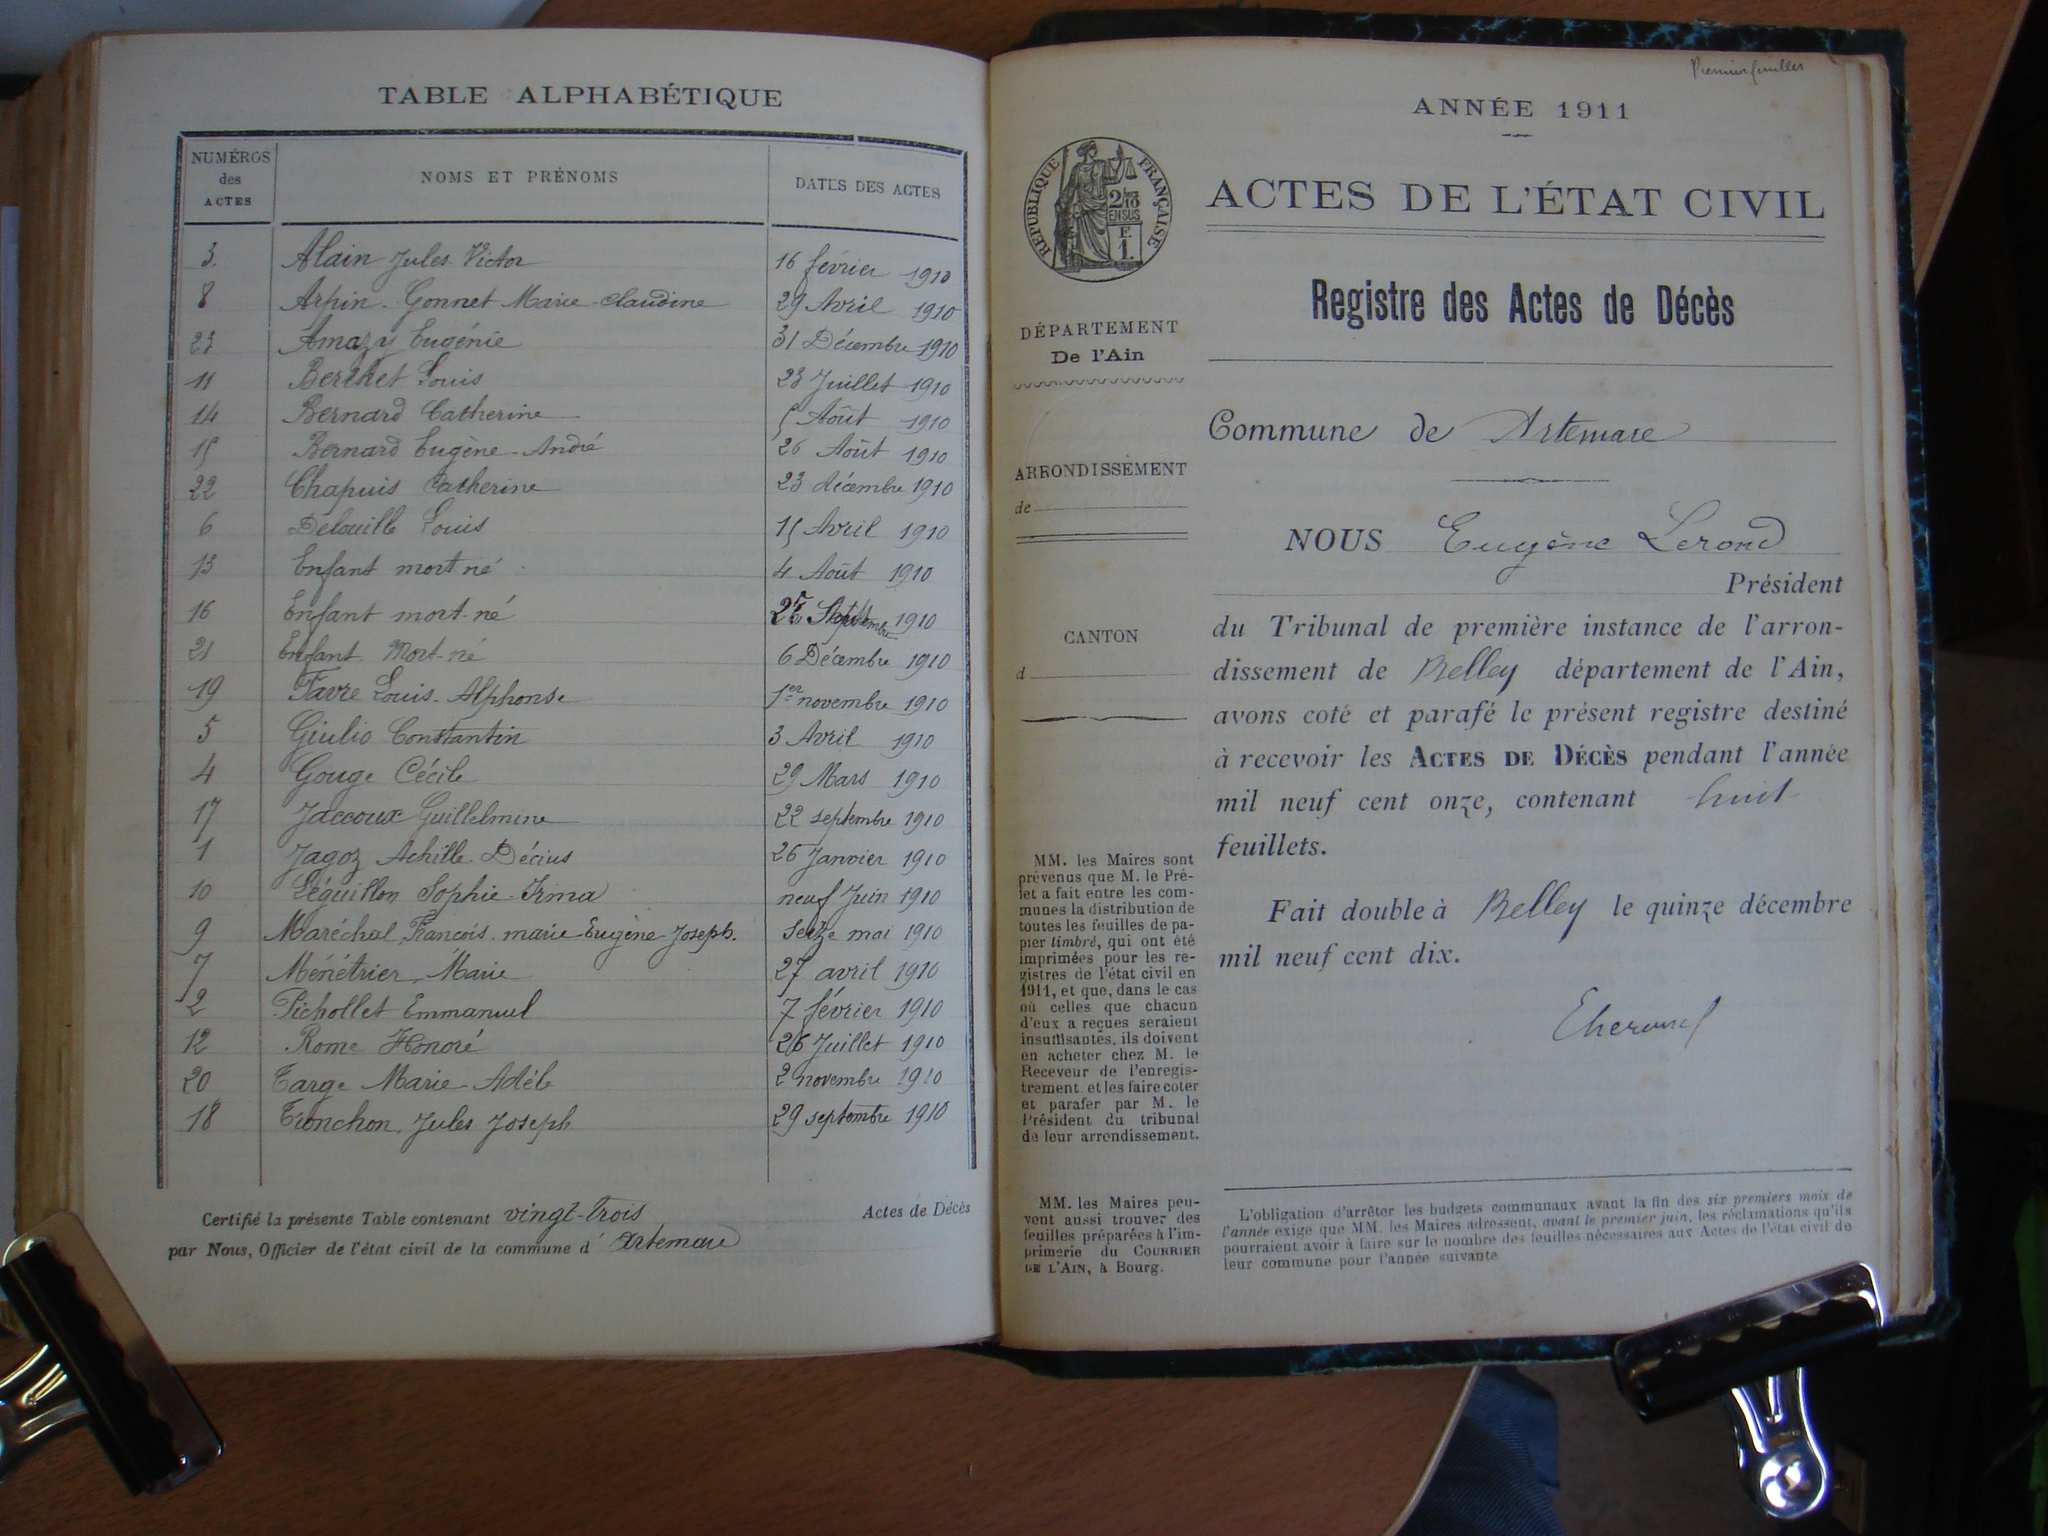 TABLE ALPHABÉTIQUE
NUMÉROS des ACTES NOMS ET PRÉNOMS DATES DES ACTES
3 Alain Jules Victor 16 février 1910
8 Arpin-Gonnet Marie-Claudine 29 Avril 1910
23 Amazy Eugénie 31 Décembre 1910
11 Berthet Louis 23 Juillet 1910
14 Bernard Catherine 5 Août 1910
15 Bernard Eugène-André 26 Août 1910
22 Chapuis Catherine 23 décembre 1910
6 Delouille Louis 15 Avril 1910
13 Enfant mort né 4 Août 1910
16 Enfant mort-né Septembre 1910
21 Enfant Mort-né 6 Décembre 1910
19 Favre Louis-Alphonse 1er novembre 1910
5 Giulio Constantin 3 Avril 1910
4 Gouge Cécile 29 Mars 1910
17 Jaccoux Guillelmine 22 septembre 1910
1 Jagoz Achille Décius 26 Janvier 1910
10 Léguillon Sophie-Irma neuf Juin 1910
9 Maréchal François-marie-Eugène-Joseph. Seize mai 1910
7 Ménétrier Marie 27 avril 1910
2 Pichollet Emmanuel 7 février 1910
12 Rome Honoré 26 Juillet 1910
20 Targe Marie-Adèle 2 novembre 1910
18 Tronchon Jules Joseph 29 septembre 1910
Certifié la présente Table contenant vingt-trois Actes de Décès
par Nous, Officier de l'état civil de la commune d' Artemare
Premier feuillet
ANNÉE 1911
RÉPUBLIQUE FRANÇAISE
2/10 EN SUS
F. 1.
ACTES DE L'ÉTAT CIVIL
Registre des Actes de Décès
DÉPARTEMENT
De l'Ain
ARRONDISSEMENT
de
CANTON
d
MM. les Maires sont
prévenus que M. le Pré-
fet a fait entre les com-
munes la distribution de
toutes les feuilles de pa-
pier timbré, qui ont été
imprimées pour les re-
gistres de l'état civil en
1911, et que, dans le cas
où celles que chacun
d'eux a reçues seraient
insuffisantes, ils doivent
en acheter chez M. le
Receveur de l'enregis-
trement et les faire coter
et parafer par M. le
Président du tribunal
de leur arrondissement.
MM. les Maires peu-
vent aussi trouver des
feuilles préparées à l'im-
primerie du COURRIER
DE L'AIN, à Bourg.
Commune de Artemare
NOUS Eugène Lerond
Président
du Tribunal de première instance de l'arron-
dissement de Belley département de l'Ain,
avons coté et parafé le présent registre destiné
à recevoir les ACTES DE DÉCÈS pendant l'année
mil neuf cent onze, contenant huit
feuillets.
Fait double à Belley le quinze décembre
mil neuf cent dix.
L'obligation d'arrêter les budgets communaux avant la fin des six premiers mois de
l'année exige que MM. les Maires adressent, avant le premier juin, les réclamations qu'ils
pourraient avoir à faire sur le nombre des feuilles nécessaires aux Actes de l'état civil de
leur commune pour l'année suivante